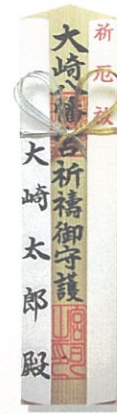 祈厄祓
大崎八幡宮祈禱御守護
大崎太郎殿